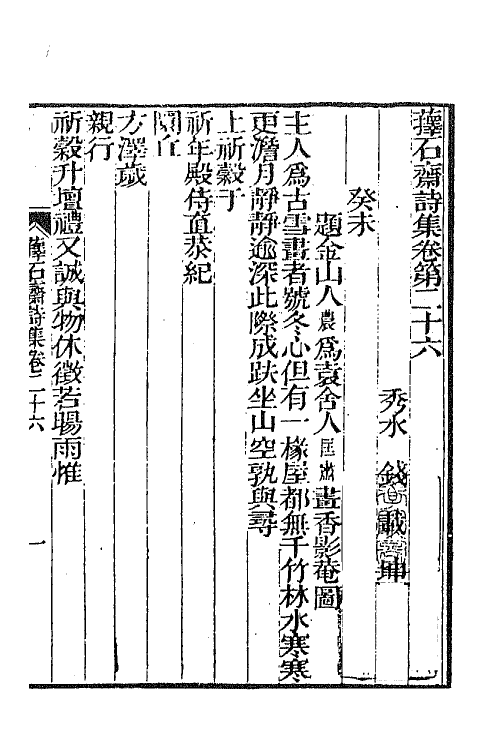 蘀石齋詩集卷第二十六
秀水 錢載 坤
癸未
題金山人農爲袁舍人匡肅畫香影菴圖
主人爲古雪畫者號冬心但有一椽屋都無千竹林水寒寒
更澹月靜靜逾深此際成趺坐山空孰與尋
上祈穀于
祈年殿侍直恭紀
圜丘
方澤歲
親行
祈穀升壇禮又誠與物休徵若暘雨惟
蘀石齋詩集卷二十六 一